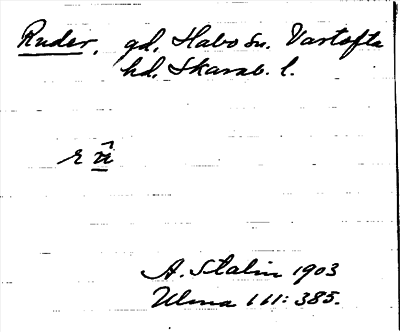 Ruder, gd, Habo sn. Vartofta
hd, Skarab. l.
A. Stalin 1903
Ulma 111: 385.